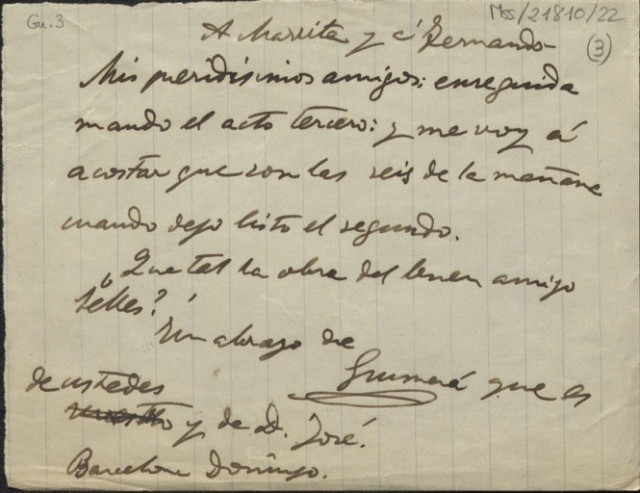 Gu. 3
Mss/21810/22
(3)
A Marríta y á Fernando
Mis queridísimos amigos: enseguida
mando el acto tercero: y me voy á
acostar que son las seis de la mañana
cuando dejo listo el segundo.
¿Que tal la obra del buen amigo
Selles?
Un abrazo de
Guimerá que es
de ustedes
y de D. José.
Barcelona Domingo.